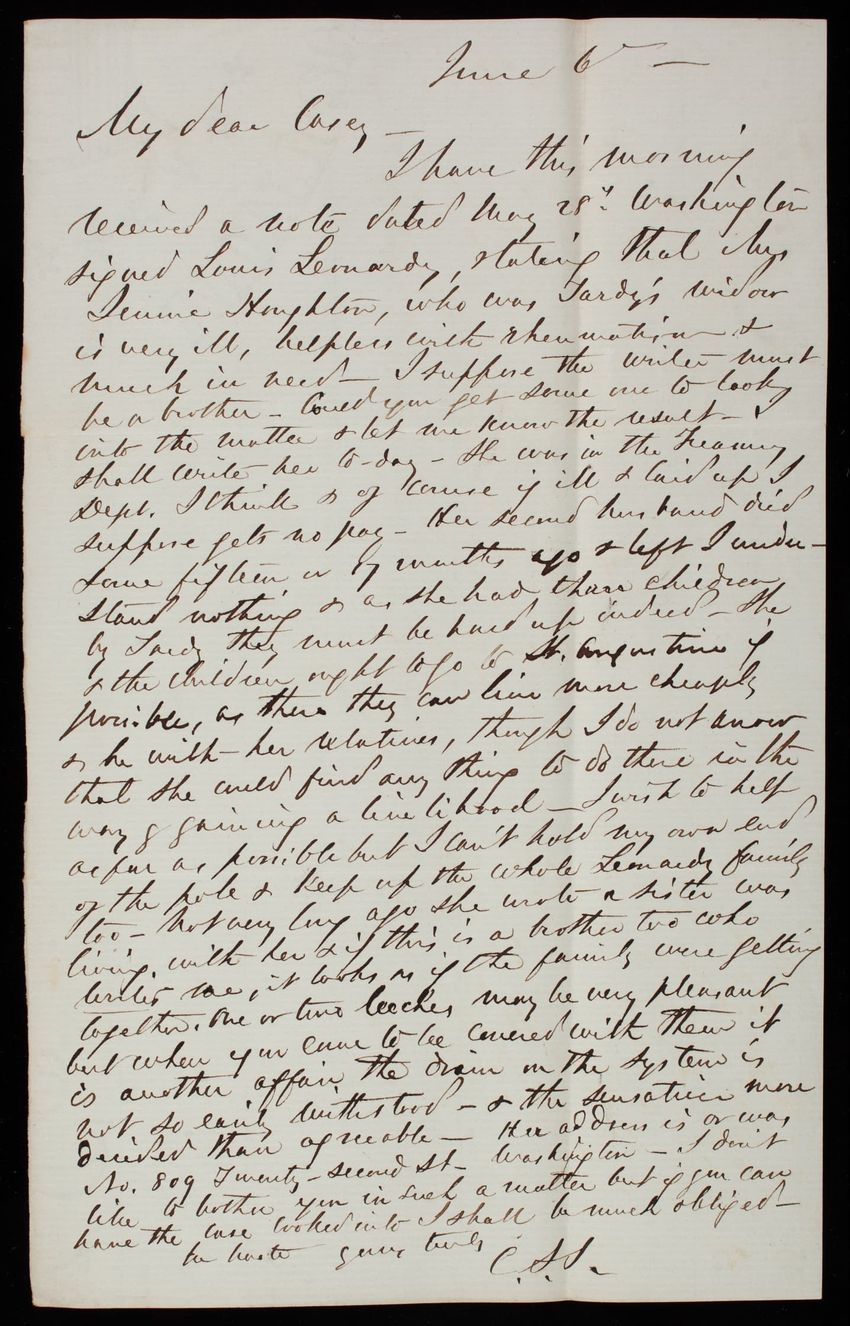 June 6 —
My dear Casey —
I have this morning
received a note dated May 28th. Washington
signed Louis Leonardy, stating that Mrs
Jennie Houghton, who was Tardy's widow
is very ill, helpless with rheumatism &
much in need — I suppose the writer must
be a brother — Could you get some one to look
into the matter & let me know the result — I
shall write her to-day — She was in the Treasury
Dept. I think & of course if ill & laid up I
suppose gets no pay — Her second husband died
some fifteen or 17 months ago & left I under-
stand nothing & as she had three children
by Tardy they must be hard up indeed — She
& the children ought to go to St. Augustine if
possible, as there they can live more cheaply
& be with her relatives, though I do not know
that she could find any thing to do there in the
way of gaining a livelihood — I wish to help
as far as possible but I can't hold my own end
of the pole & keep up the whole Leonardy family
too — Not very long ago she wrote a sister was
living with her & if this is a brother too who
writes me, it looks as if the family were getting
together. One or two leeches may be very pleasant
but when you come to be covered with them it
is another affair, the drain on the system is
not so easily withstood — & the sensation more
decided than agreeable — Her address is or was
No. 809 Twenty-second St — Washington — I don't
like to bother you in such a matter but if you can
have the case looked into I shall be much obliged —
In haste yours truly